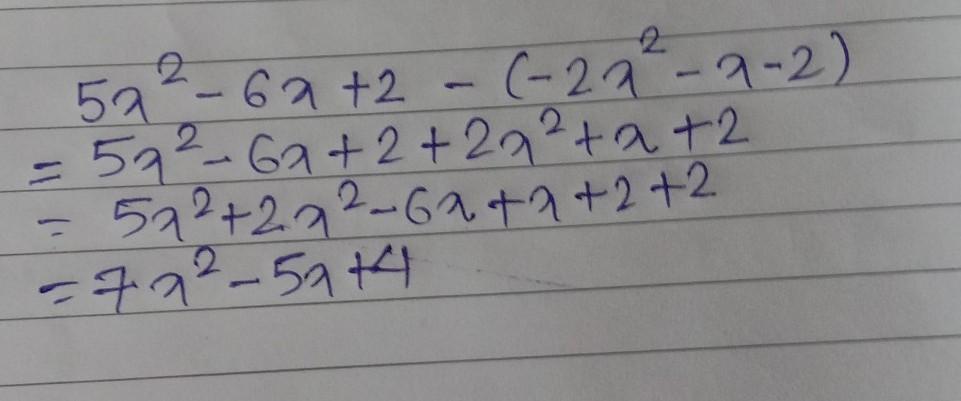 5x² - 6x + 2 - (-2x² - x - 2)
= 5x² - 6x + 2 + 2x² + x + 2
= 5x² + 2x² - 6x + x + 2 + 2
= 7x² - 5x + 4